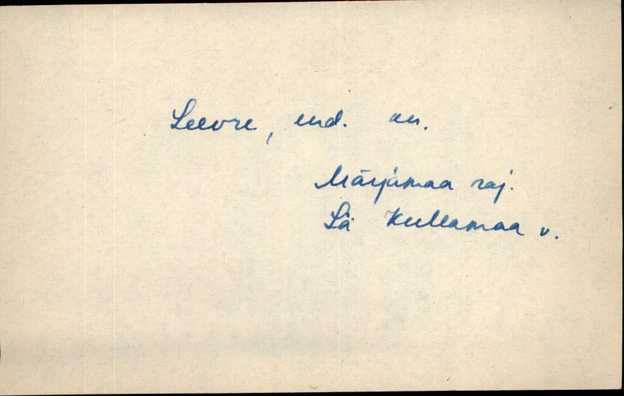 Leevre, end. as.
Märjamaa raj.
Lä Kullamaa v.